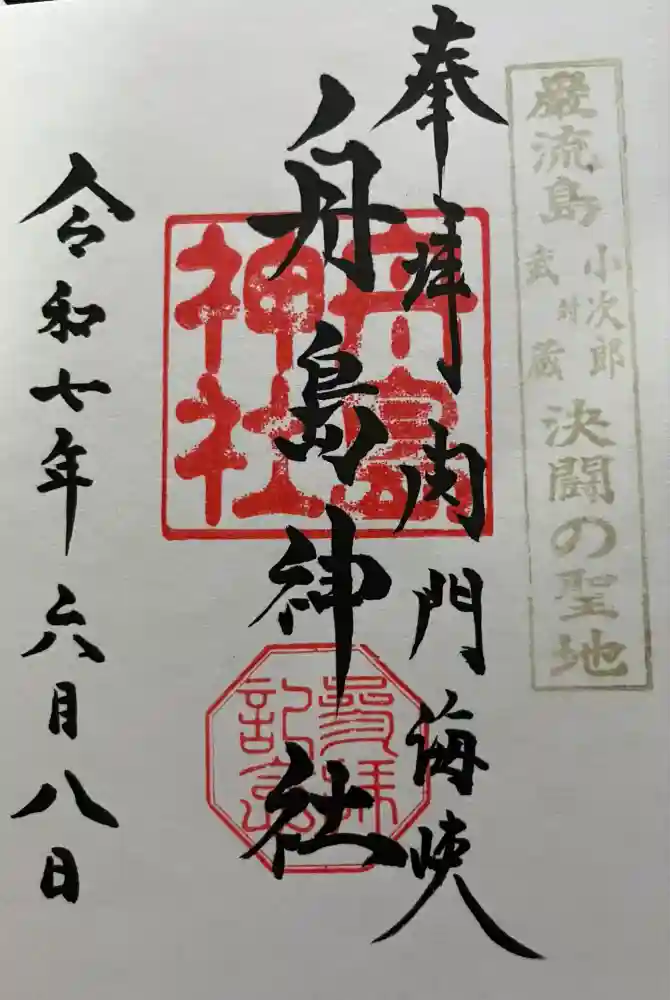 巌流島
小次郎
対
武蔵
決闘の聖地
奉拝 関門海峡
舟島神社
舟島
神社
參拝
記念
令和七年 六月八日